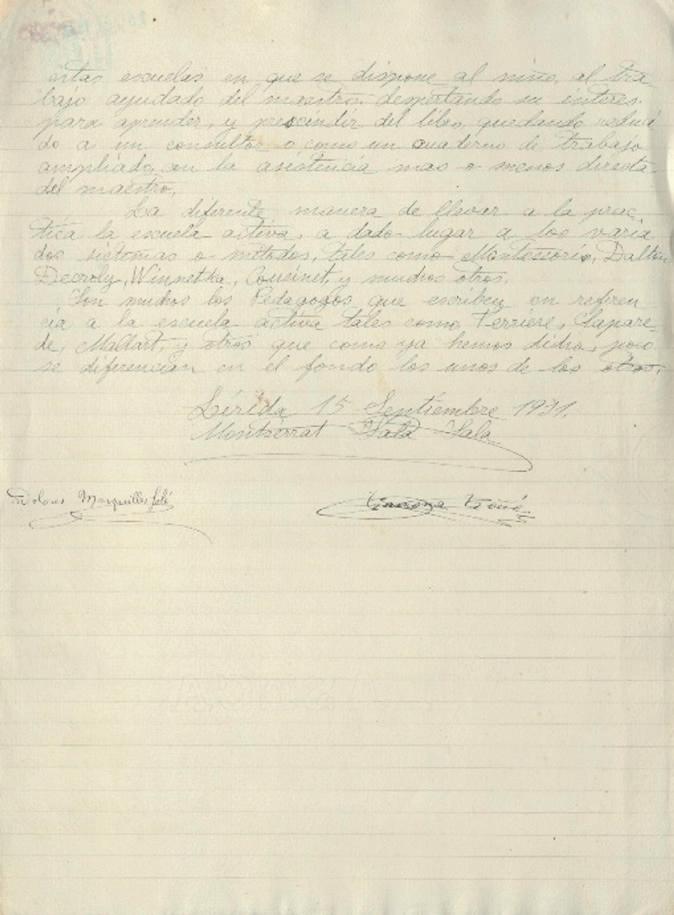 estas escuelas en que se dispone al niño, al tra
bajo ayudado del maestro, despertando su interes
para aprender, y prescindir del libro, quedando reduci
do a un consultor o como un cuaderno de trabajo
ampliado, con la asistencia mas o menos directa
del maestro.
La diferente manera de llevar a la prac
tica la escuela activa, a dado lugar a los varia
dos sistemas o métodos, tales como Montessorio, Dalton,
Decroly, Winnetka, Cousinet, y muchos otros.
Son muchos los Pedagogos que escriben en referen
cia a la escuela activa tales como Ferriere, Clapare
de, Mallart, y otros que como ya hemos dicho, poco
se diferencian en el fondo los unos de los otros.
Lérida 15 Septiembre 1931.
Montserrat Sala Sala
Dolores